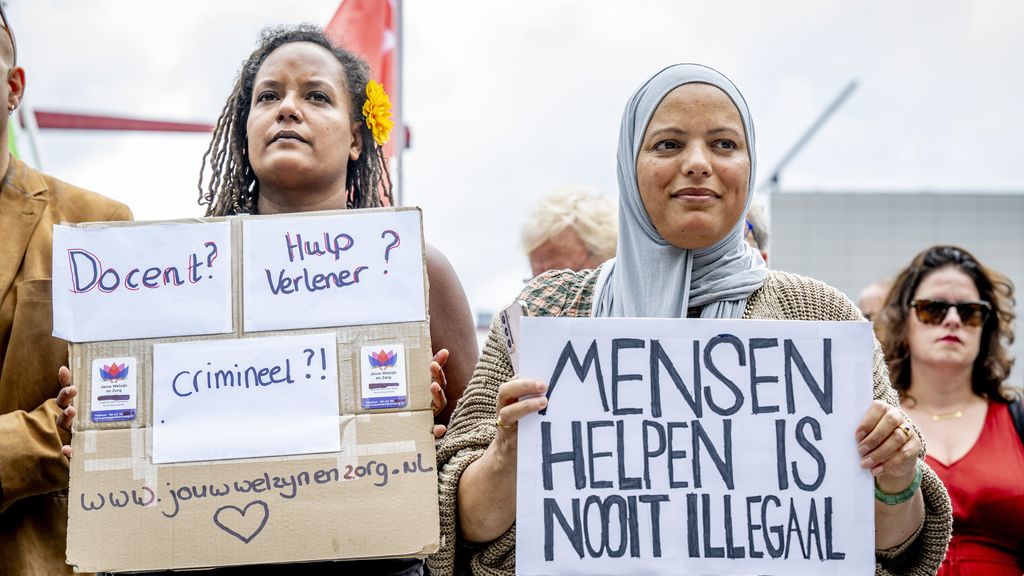 Docent?
Hulp
Verlener ?
Crimineel?!
Jouw Welzijn
en Zorg
Jouw Welzijn
en Zorg
www.jouwwelzynenzorg.nl
MENSEN
HELPEN IS
NOOIT ILLEGAAL